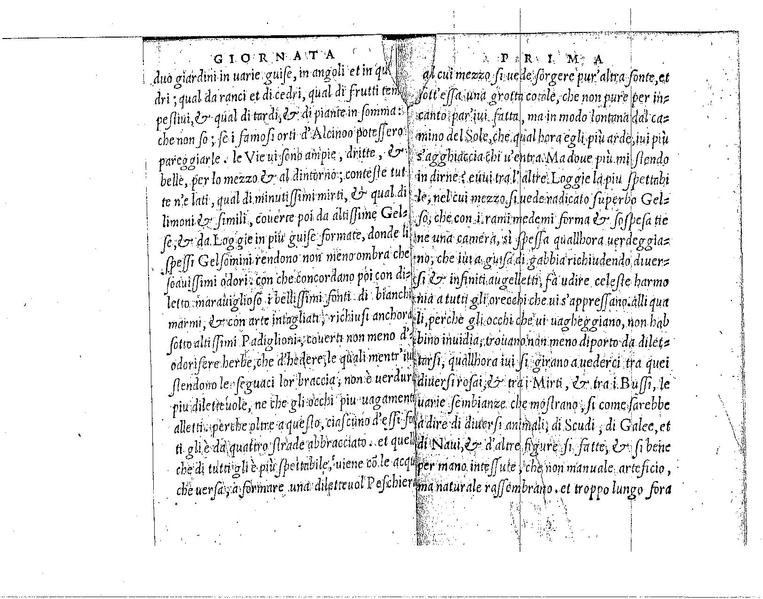 GIORNATA
duo giardini in uarie guise, in angoli et in qu
dri; qual da ranci et di cedri, qual di frutti tem
pestiui, & qual di tardi, & di piante in somma:
che non so; se i famosi orti d'Alcinoo potessero
pareggiarle. le Vie ui sono ampie, dritte, &
belle, per lo mezzo & al dintorno; conteste tut
te n'e lati, qual di minutissimi mirti, & qual di
limoni & simili, couerte poi da altissime Gel=
se, & da Loggie in più guise formate, donde li
spessi Gelsomini rendono non meno ombra che
soauissimi odori. con che concordano poi con di=
letto marauiglioso i bellissimi fonti di bianchi
marmi, & con arte intagliati; richiusi anchora
sotto altissimi Padiglioni, couerti non meno d'
odorifere herbe, che d'hedere; le quali ment'iu
stendono le seguaci lor braccia; non è uerdur
piu diletteuole, ne che gli occhi piu uagament
alletti. perche oltre a questo, ciascuno d'essi fo
ti gli è da quattro strade abbracciato. et quell
che di tutti gli è più spettabile, uiene cō le acqu
che uersa, a formare una diletteuol Peschier
PRIMA
al cui mezzo si uede sorgere pur'altra fonte, et
sott'essa una grotta cotale, che non pure per in=
canto par'iui fatta, ma in modo lontana dal ca=
mino del Sole, che qual hora egli più arde, iui più
s'agghiaccia chi u'entra. Ma doue più mi stendo
in dirne? euui tra l'altre Loggie la piu spettabi
le, nel cui mezzo si uede radicato superbo Gel=
so, che con i rami medemi forma & sospesa tie
ne una camera, sì spessa qualhora uerdeggia=
no; che iui a guisa di gabbia richiudendo diuer=
si & infiniti augelletti, fa udire celeste harmo
nia a tutti gli orecchi che ui s'appressano. alli qua
li, perche gli occhi che ui uagheggiano, non hab
bino inuidia, trouano non meno diporto da dilet=
tarsi, quallhora iui si girano a uederci tra quei
diuersi rosai, & tra i Mirti, & tra i Bussi, le
uarie sembianze che mostrano, si come sarebbe
a dire di diuersi animali, di Scudi, di Galee, et
di Naui, & d'altre figure si fatte, & si bene
per mano intessute, che non manuale arteficio,
ma naturale rassembrano. et troppo lungo fora